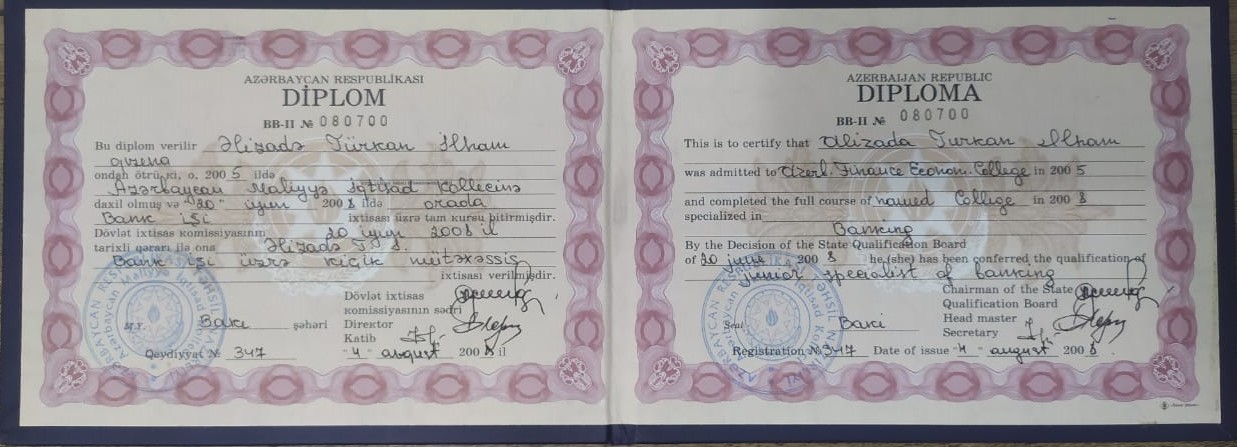 AZƏRBAYCAN RESPUBLİKASI
DİPLOM
BB-II № 080700
Bu diplom verilir Əlizadə Türkan İlham
qızına
ondan ötrü ki, o, 2005 ildə
Azərbaycan Maliyyə İqtisad Kollecinə
daxil olmuş və "20" iyun 2008 ildə orada
Bank işi ixtisası üzrə tam kursu bitirmişdir.
Dövlət ixtisas komissiyasının 20 iyun 2008 il
tarixli qərarı ilə ona Əlizadə T. İ.
Bank işi üzrə kiçik mütəxəssis
ixtisası verilmişdir.
Dövlət ixtisas
komissiyasının sədri
M.Y. Bakı şəhəri
Direktor
Katib
Qeydiyyat № 347 "4" avqust 2008 il
AZERBAIJAN REPUBLIC
DIPLOMA
BB-II № 080700
This is to certify that Alizada Turkan Ilham
was admitted to Azerb. Finance Econom. College in 2005
and completed the full course of named College in 2008
specialized in
Banking
By the Decision of the State Qualification Board
of 20 june 2008 he (she) has been conferred the qualification of
junior specialist of banking
Chairman of the State
Qualification Board
Seal Baki
Head master
Secretary
Registration № 347 Date of issue "4" august 2008.